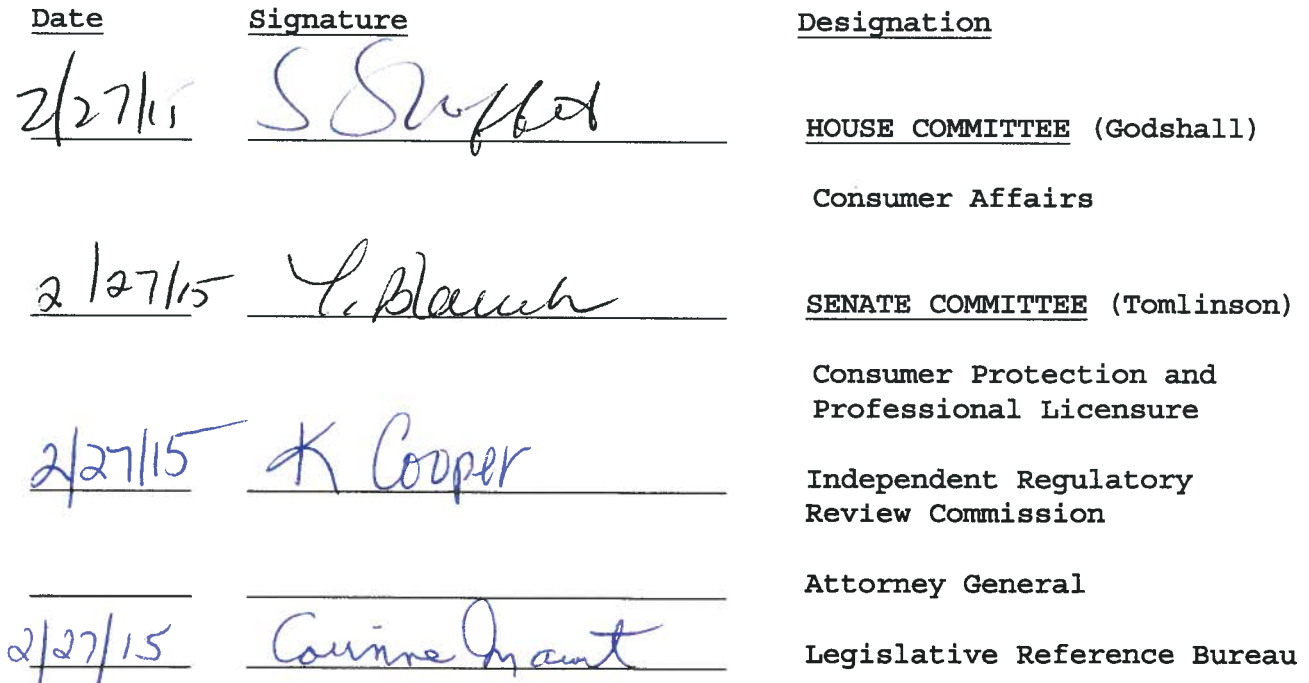 Date Signature Designation
2/27/15 HOUSE COMMITTEE (Godshall)
Consumer Affairs
2/27/15 SENATE COMMITTEE (Tomlinson)
Consumer Protection and
Professional Licensure
2/27/15 K Cooper Independent Regulatory
Review Commission
Attorney General
2/27/15 Corinne Legislative Reference Bureau